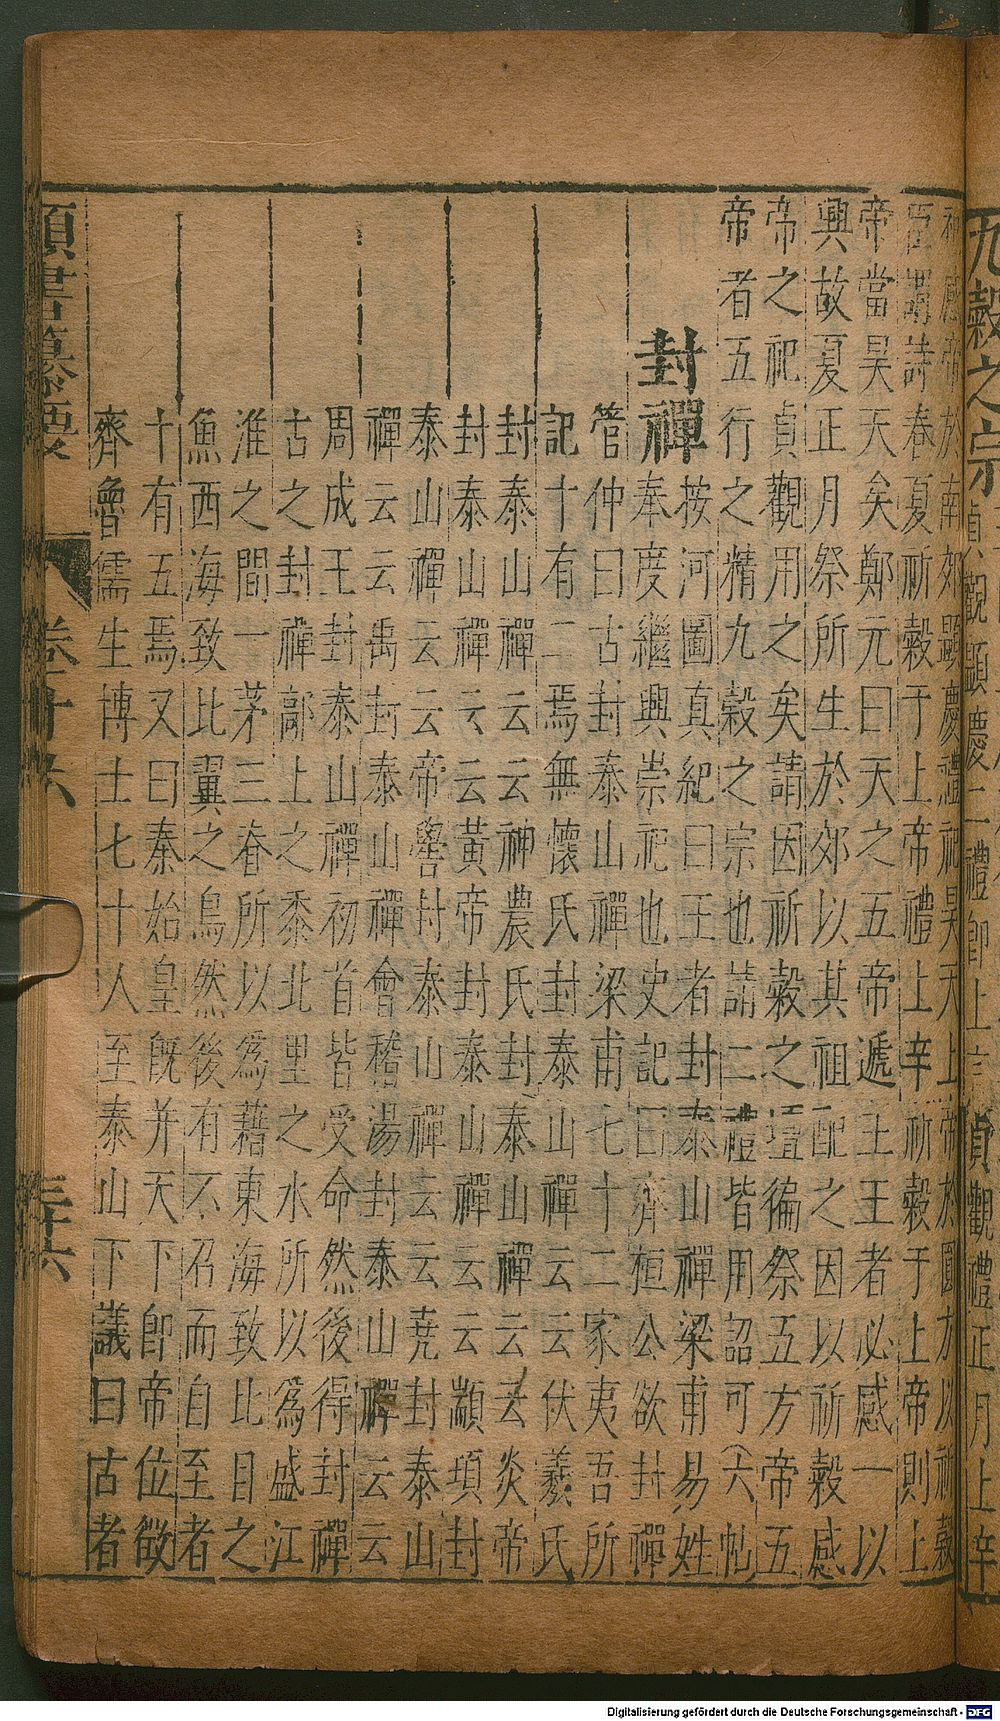 九穀之宗貞觀顯慶二禮卽上辛貞觀禮正月上辛
祀感帝於南郊顯慶禮祀昊天上帝於圜丘以祈穀
臣謂詩春夏祈穀于上帝禮上辛祈穀于上帝則上
帝當昊天矣鄭元曰天之五帝遞王王者必感一以
興故夏正月祭所生於郊以其祖配之因以祈穀感
帝之祀貞觀用之矣請因祈穀之壇徧祭五方帝五
帝者五行之精九穀之宗也請二禮皆用詔可六帖
封禪按河圖真紀曰王者封泰山禪梁甫易姓
奉度繼興崇祀也史記曰齊桓公欲封禪
管仲曰古封泰山禪梁甫七十二家夷吾所
記十有二焉無懷氏封泰山禪云云伏羲氏
封泰山禪云云神農氏封泰山禪云云炎帝
封泰山禪云云黃帝封泰山禪云云顓頊封
泰山禪云云帝嚳封泰山禪云云堯封泰山
禪云云禹封泰山禪會稽湯封泰山禪云云
周成王封泰山禪初首皆受命然後得封禪
古之封禪鄗上之黍北里之水所以爲盛江
淮之間一茅三脊所以爲藉東海致比目之
魚西海致比翼之鳥然後有不召而自至者
十有五焉又曰秦始皇旣并天下卽帝位徵
齊魯儒生博士七十人至泰山下議曰古者
類書纂要 卷 三十六
Digitalisierung gefördert durch die Deutsche Forschungsgemeinschaft - DFG